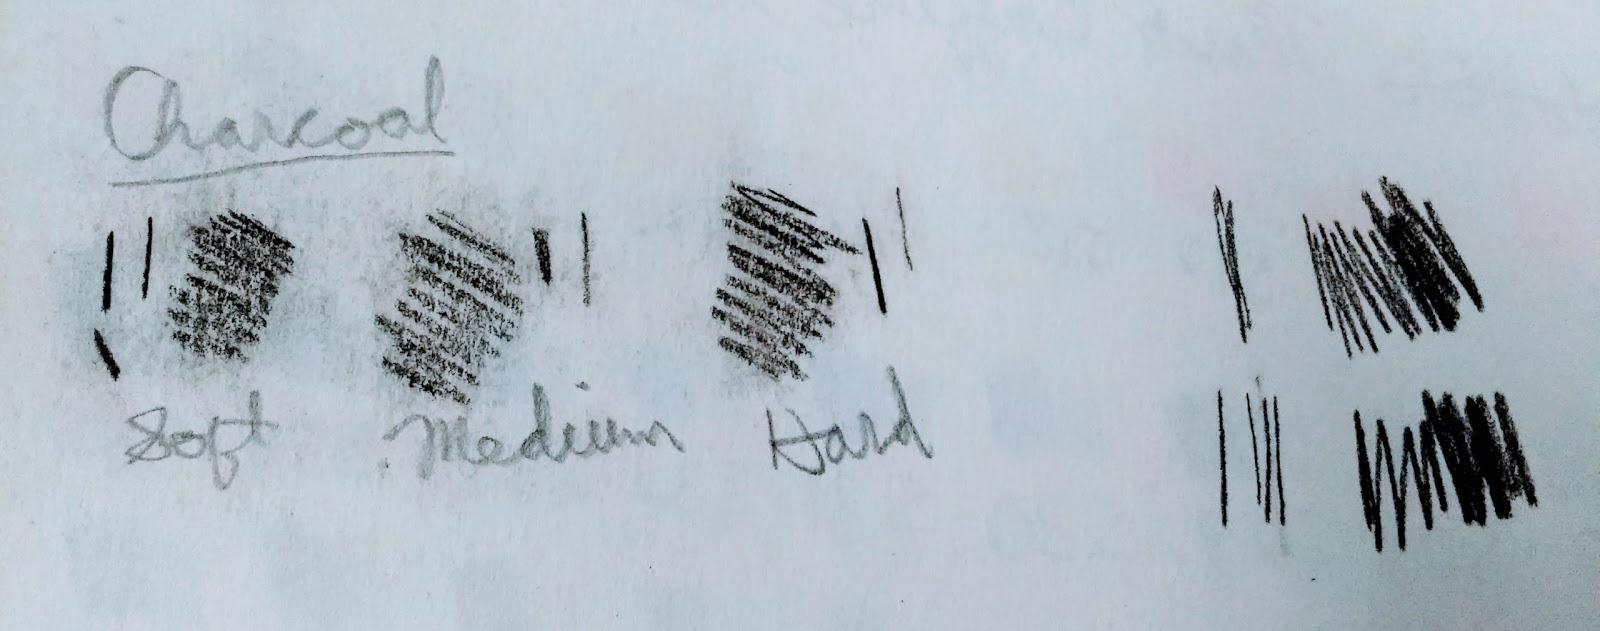 Charcoal
Soft Medium Hard